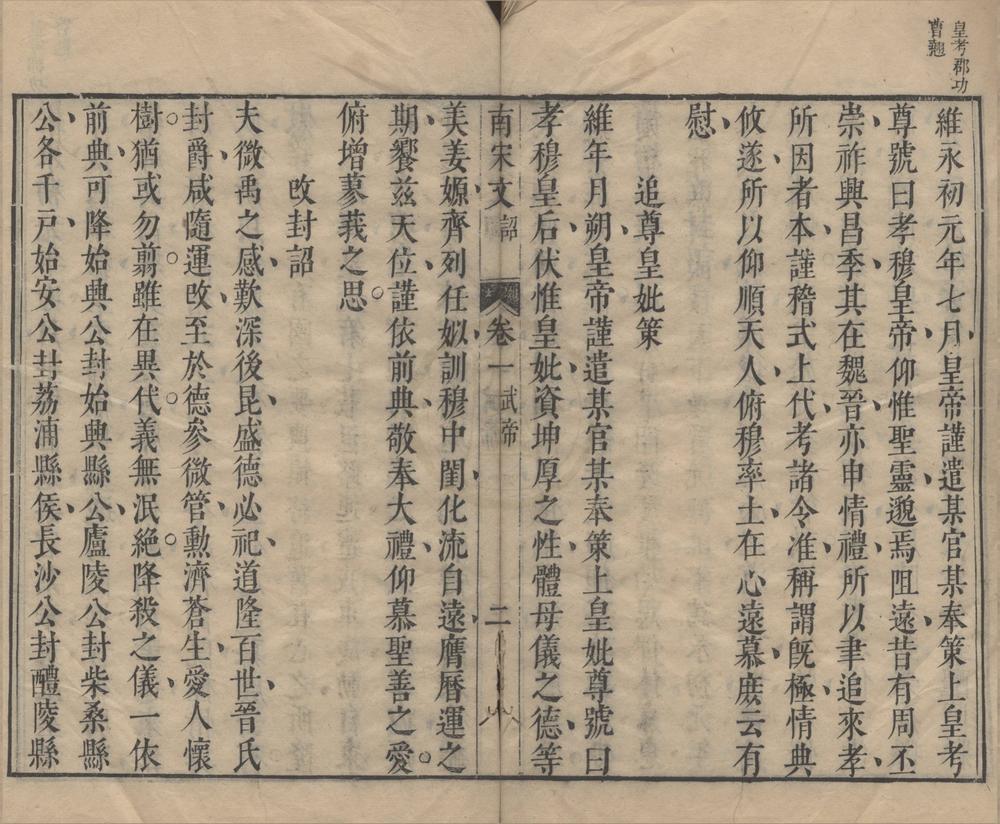 皇考郡功
曹翹
維永初元年七月皇帝謹遣某官某奉策上皇考
尊號曰孝穆皇帝仰惟聖靈邈焉阻遠昔有周丕
崇祚興昌季其在魏晉亦申情禮所以聿追來孝
所因者本謹稽式上代考諸令准稱謂旣極情典
攸遂所以仰順天人俯穆率土在心遠慕庶云有
慰
追尊皇妣策
維年月朔皇帝謹遣某官某奉策上皇妣尊號曰
孝穆皇后伏惟皇妣資坤厚之性體母儀之德等
南宋文 詔 卷一 武帝 二
美姜嫄齊列任姒訓穆中閨化流自遠膺曆運之
期饗茲天位謹依前典敬奉大禮仰慕聖善之愛
俯增蓼莪之思
改封詔
夫微禹之感歎深後昆盛德必祀道隆百世晉氏
封爵咸隨運改至於德參微管勲濟蒼生愛人懷
樹猶或勿翦雖在異代義無泯絕降殺之儀一依
前典可降始興公封始興縣公廬陵公封柴桑縣
公各千戸始安公封荔浦縣侯長沙公封醴陵縣